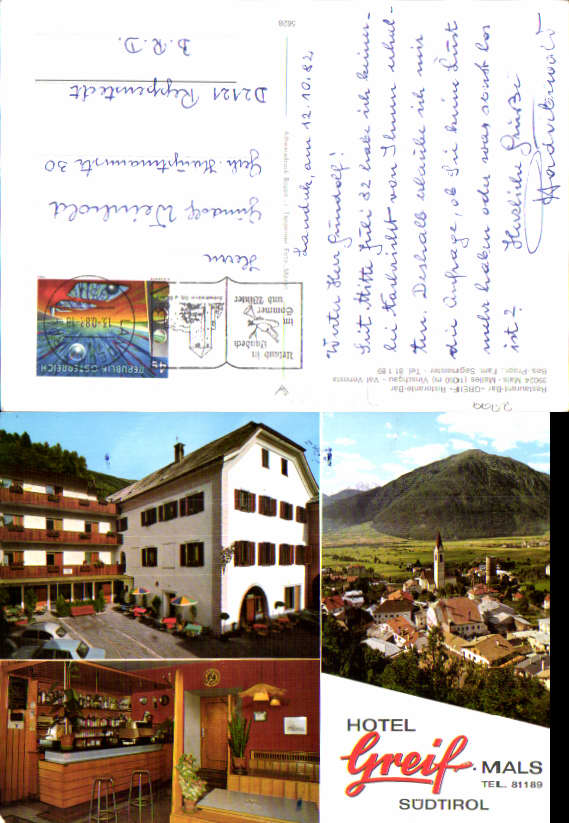 Landeck, am 12.10.82
Werter Herr Gundolf!
Seit Mitte Juli 82 habe ich keiner-
lei Nachricht von Ihnen erhal-
ten. Deshalb erlaube ich mir
die Anfrage, ob Sie keine Lust
mehr haben oder was sonst los
ist?
Herzliche Grüße
Herrn
Gundolf Weinhold
Geh. Hauptmannstr. 30
D2121 Reppenstedt
B.R.D.
Urlaub in
Landeck
im
Sommer
und Winter
REPUBLIK ÖSTERREICH
Restaurant-Bar -GREIF- Ristorante-Bar
39024 Mals - Malles (1050 m) Vinschgau - Val Venosta
Bes.-Propr.: Fam. Sagmeister - Tel. 81 1 89
5628
HOTEL
Greif · MALS
TEL. 81189
SÜDTIROL